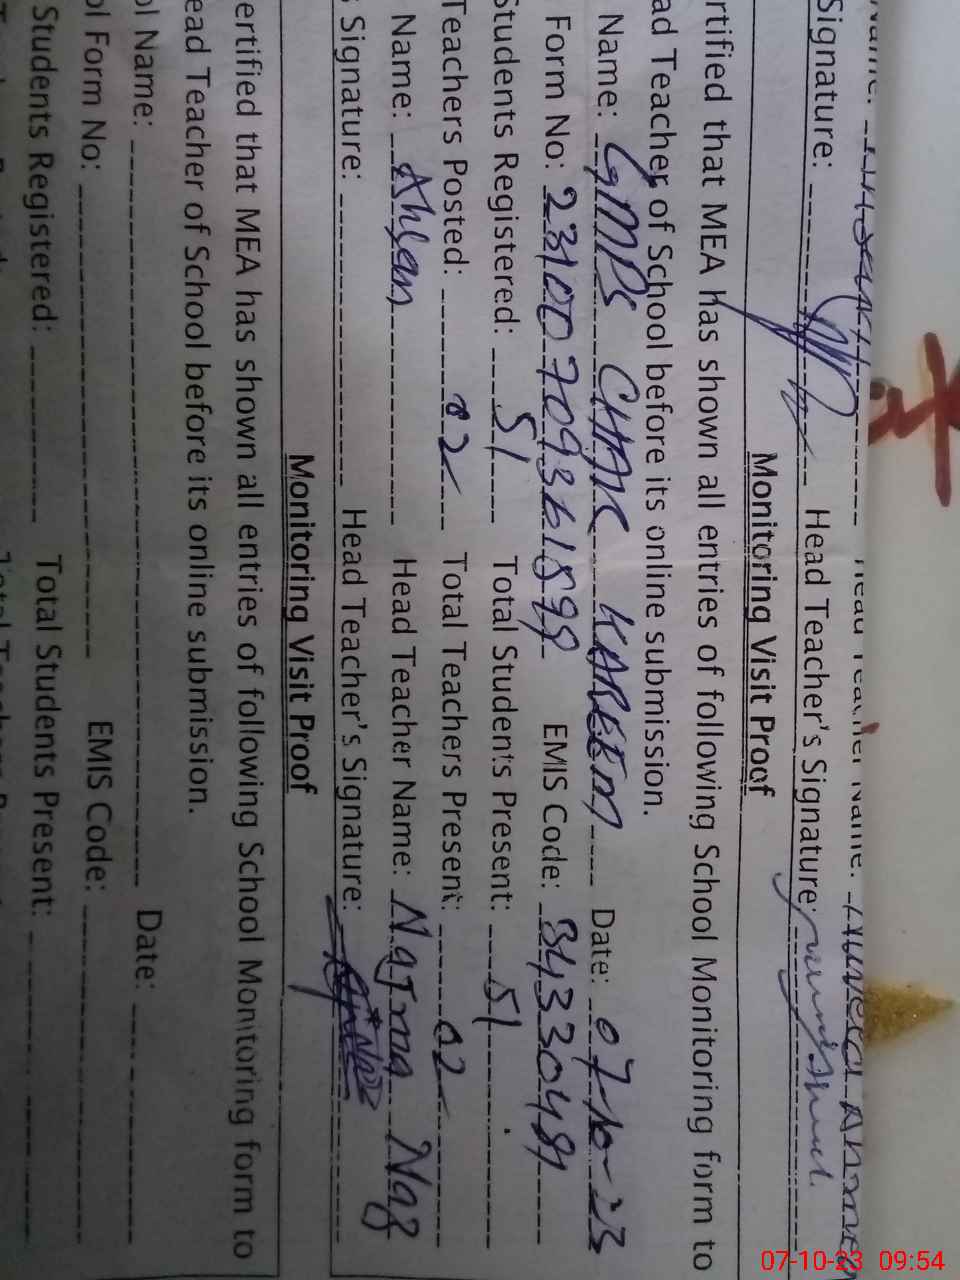 Signature: Head Teacher's Signature:
Monitoring Visit Proof
rtified that MEA has shown all entries of following School Monitoring form to
ad Teacher of School before its online submission.
Name: GMPS CHAK KAREEM Date: 07-10-23
Form No: EMIS Code:
Students Registered: 51 Total Students Present: 51
Teachers Posted: 02 Total Teachers Present: 02
Name: Ahsan Head Teacher Name: Najma Naz
Signature: Head Teacher's Signature:
Monitoring Visit Proof
ertified that MEA has shown all entries of following School Monitoring form to
ead Teacher of School before its online submission.
ol Name: Date:
ol Form No: EMIS Code:
Students Registered: Total Students Present:
07-10-23 09:54